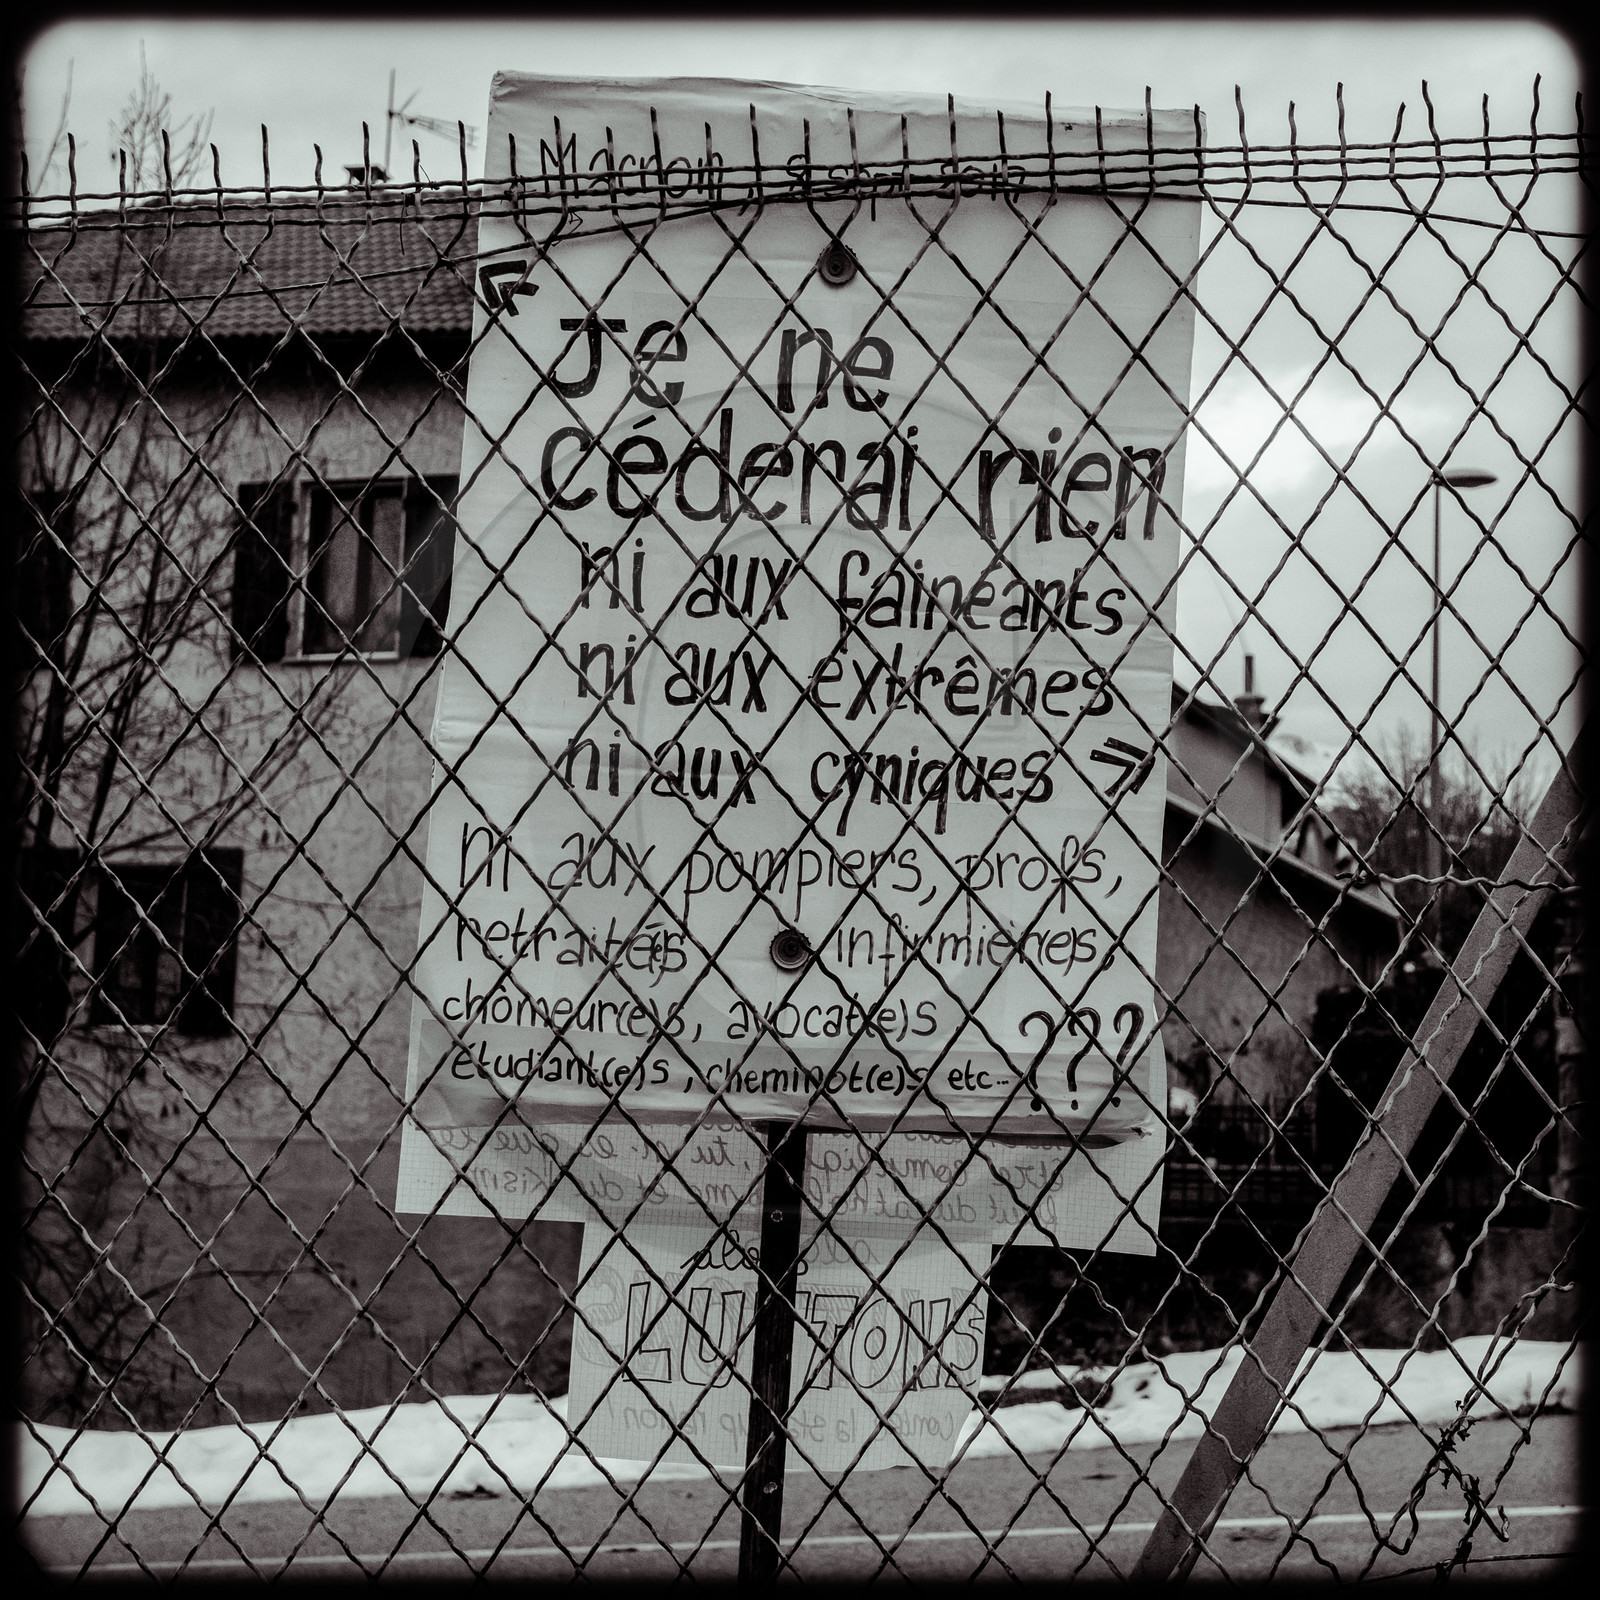 Macron, 8 sept 2017
« Je ne
céderai rien
ni aux fainéants
ni aux extrêmes
ni aux cyniques »
ni aux pompiers, profs,
retraité(e)s infirmièr(e)s,
chômeur(e)s, avocat(e)s
étudiant(e)s, cheminot(e)s etc... ???
alors
LUTTONS
contre la start up nation!